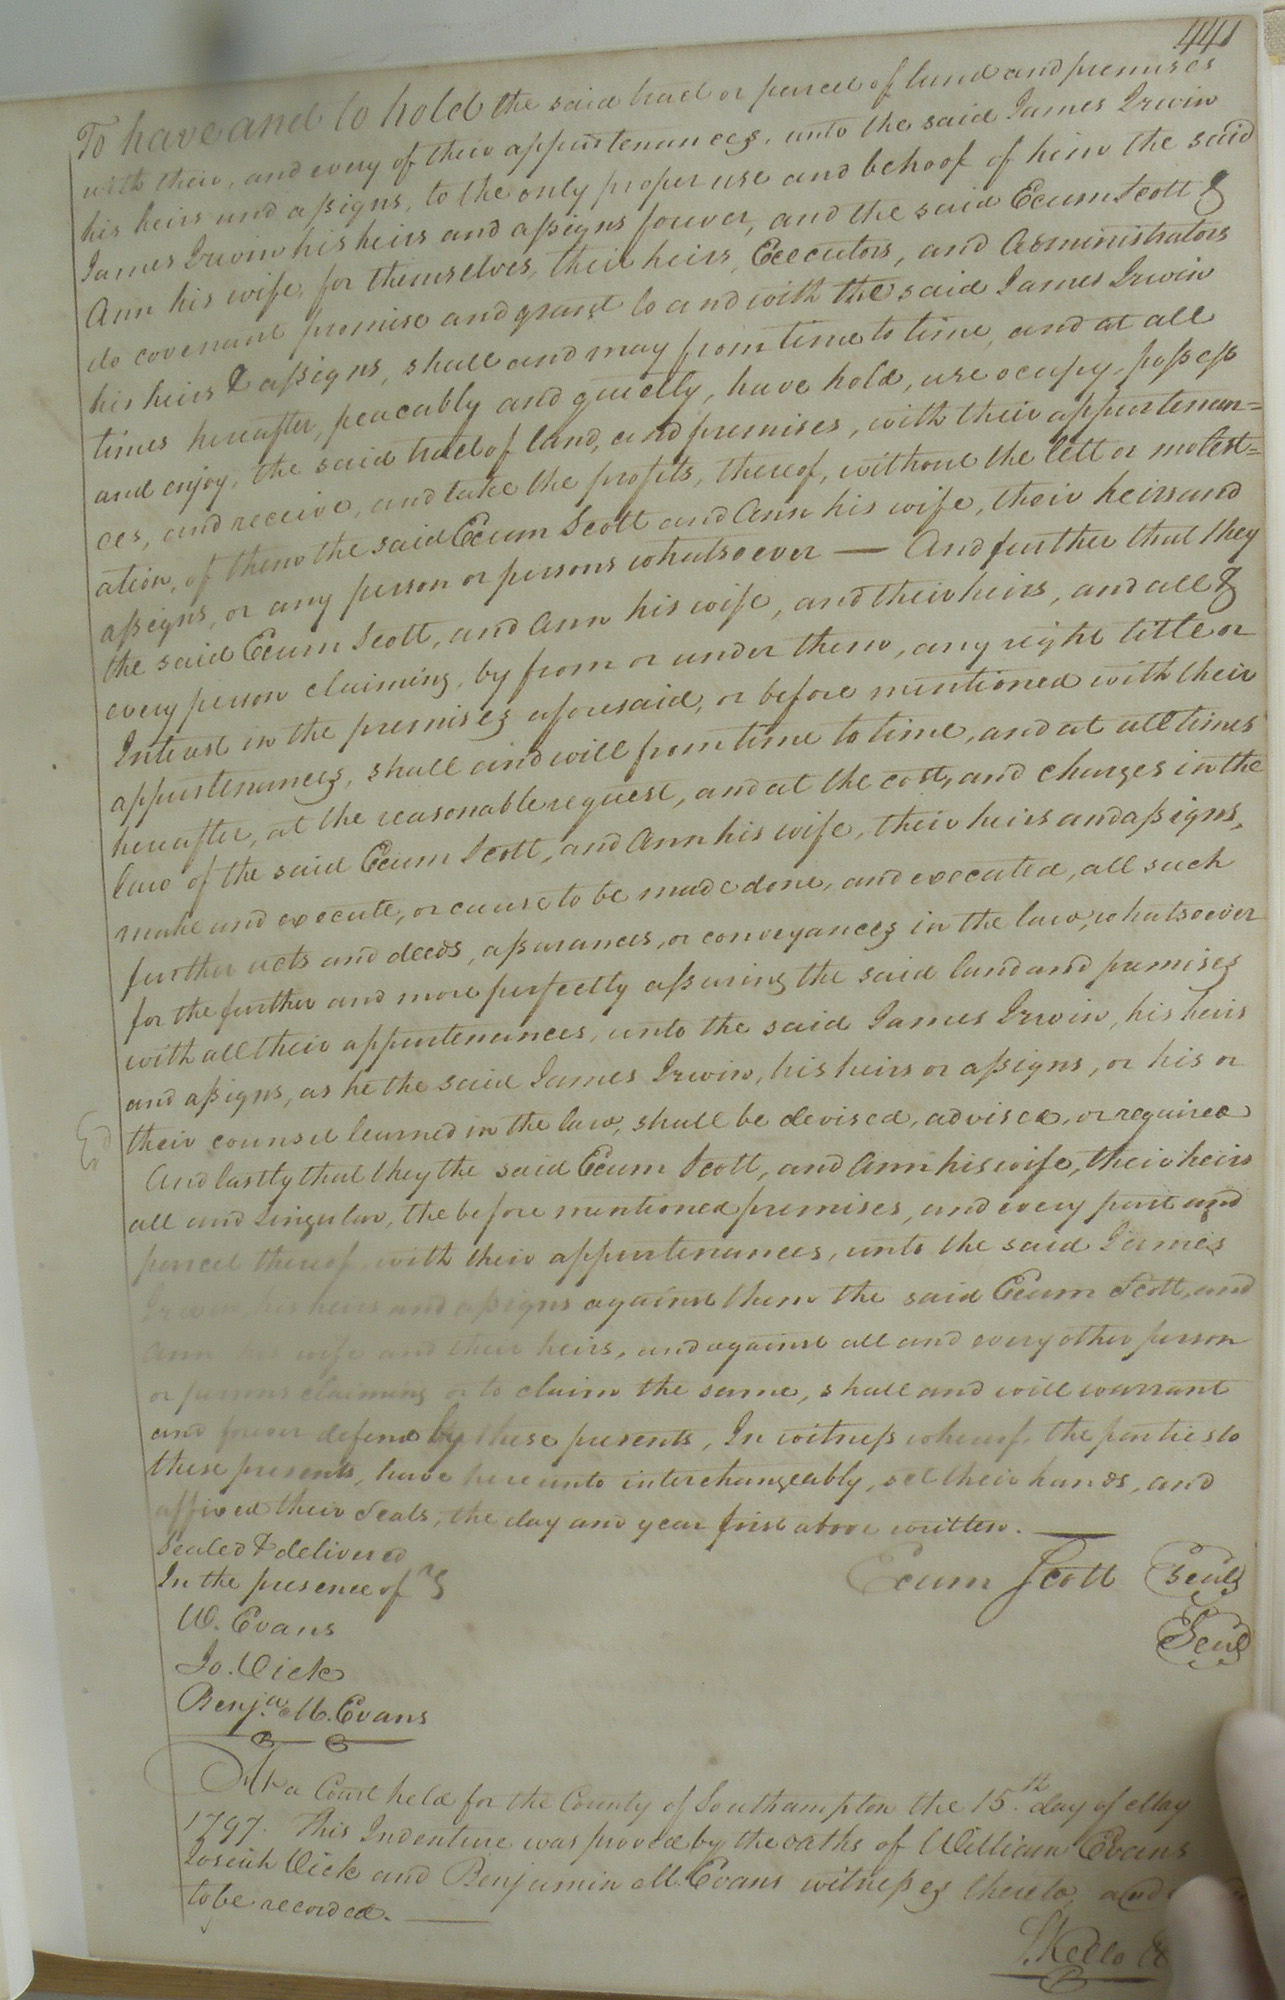 441
To have and to hold the said tract or parcel of land and premises
with their, and every of their appurtenances, unto the said James Irwin
his heirs and assigns, to the only proper use and behoof of him the said
James Irwin his heirs and assigns forever, and the said Exum Scott &
Ann his wife, for themselves, their heirs, Executors, and Administrators
do covenant promise and grant to and with the said James Irwin
his heirs & assigns, shall and may from time to time, and at all
times hereafter, peacably and quietly, have hold, use ocupy, possess
and enjoy, the said tract of land, and premises, with their appurtenan=
ces, and receive, and take the profits, thereof, without the lett or molest=
ation, of them the said Exum Scott and Ann his wife, their heirs and
assigns, or any person or persons whatsoever — And further that they
the said Exum Scott, and Ann his wife, and their heirs, and all &
every person claiming, by from or under them, any right title or
Interest in the premises aforesaid, or before mentioned with their
appurtenances, shall and will from time to time, and at all times
hereafter, at the reasonable request, and at the cost, and charges in the
law of the said Exum Scott, and Ann his wife, their heirs and assigns,
make and execute, or cause to be made done, and executed, all such
further acts and deeds, assurances, or conveyances in the law, whatsoever
for the further and more perfectly assuring the said land and premises
with all their appurtenances, unto the said James Irwin, his heirs
and assigns, as he the said James Irwin, his heirs or assigns, or his or
their counsel learned in the law, shall be devised, advised, or required
Exd
And lastly that they the said Exum Scott, and Ann his wife, their heirs
all and singular, the before mentioned premises, and every part and
parcel thereof with their appurtenances, unto the said James
Irwin his heirs and assigns against them the said Exum Scott, and
Ann his wife and their heirs, and against all and every other person
or persons claiming or to claim the same, shall and will warrant
and forever defend by these presents, In witness whereof the parties to
these presents, have hereunto interchangeably, set their hands, and
affixed their Seals, the day and year first above written. —
Sealed & delivered
In the presence of
Exum Scott Seal
W. Evans
Seal
Jo. Vick
Benja. M. Evans
At a Court held for the County of Southampton the 15.th day of May
1797. This Indenture was proved by the oaths of William Evans
Josiah Vick and Benjamin M. Evans witnesses thereto, and
to be recorded. —
S. Kello